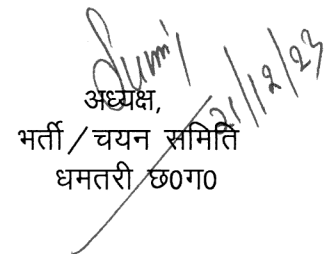 21/12/23
अध्यक्ष,
भर्ती / चयन समिति
धमतरी छ0ग0